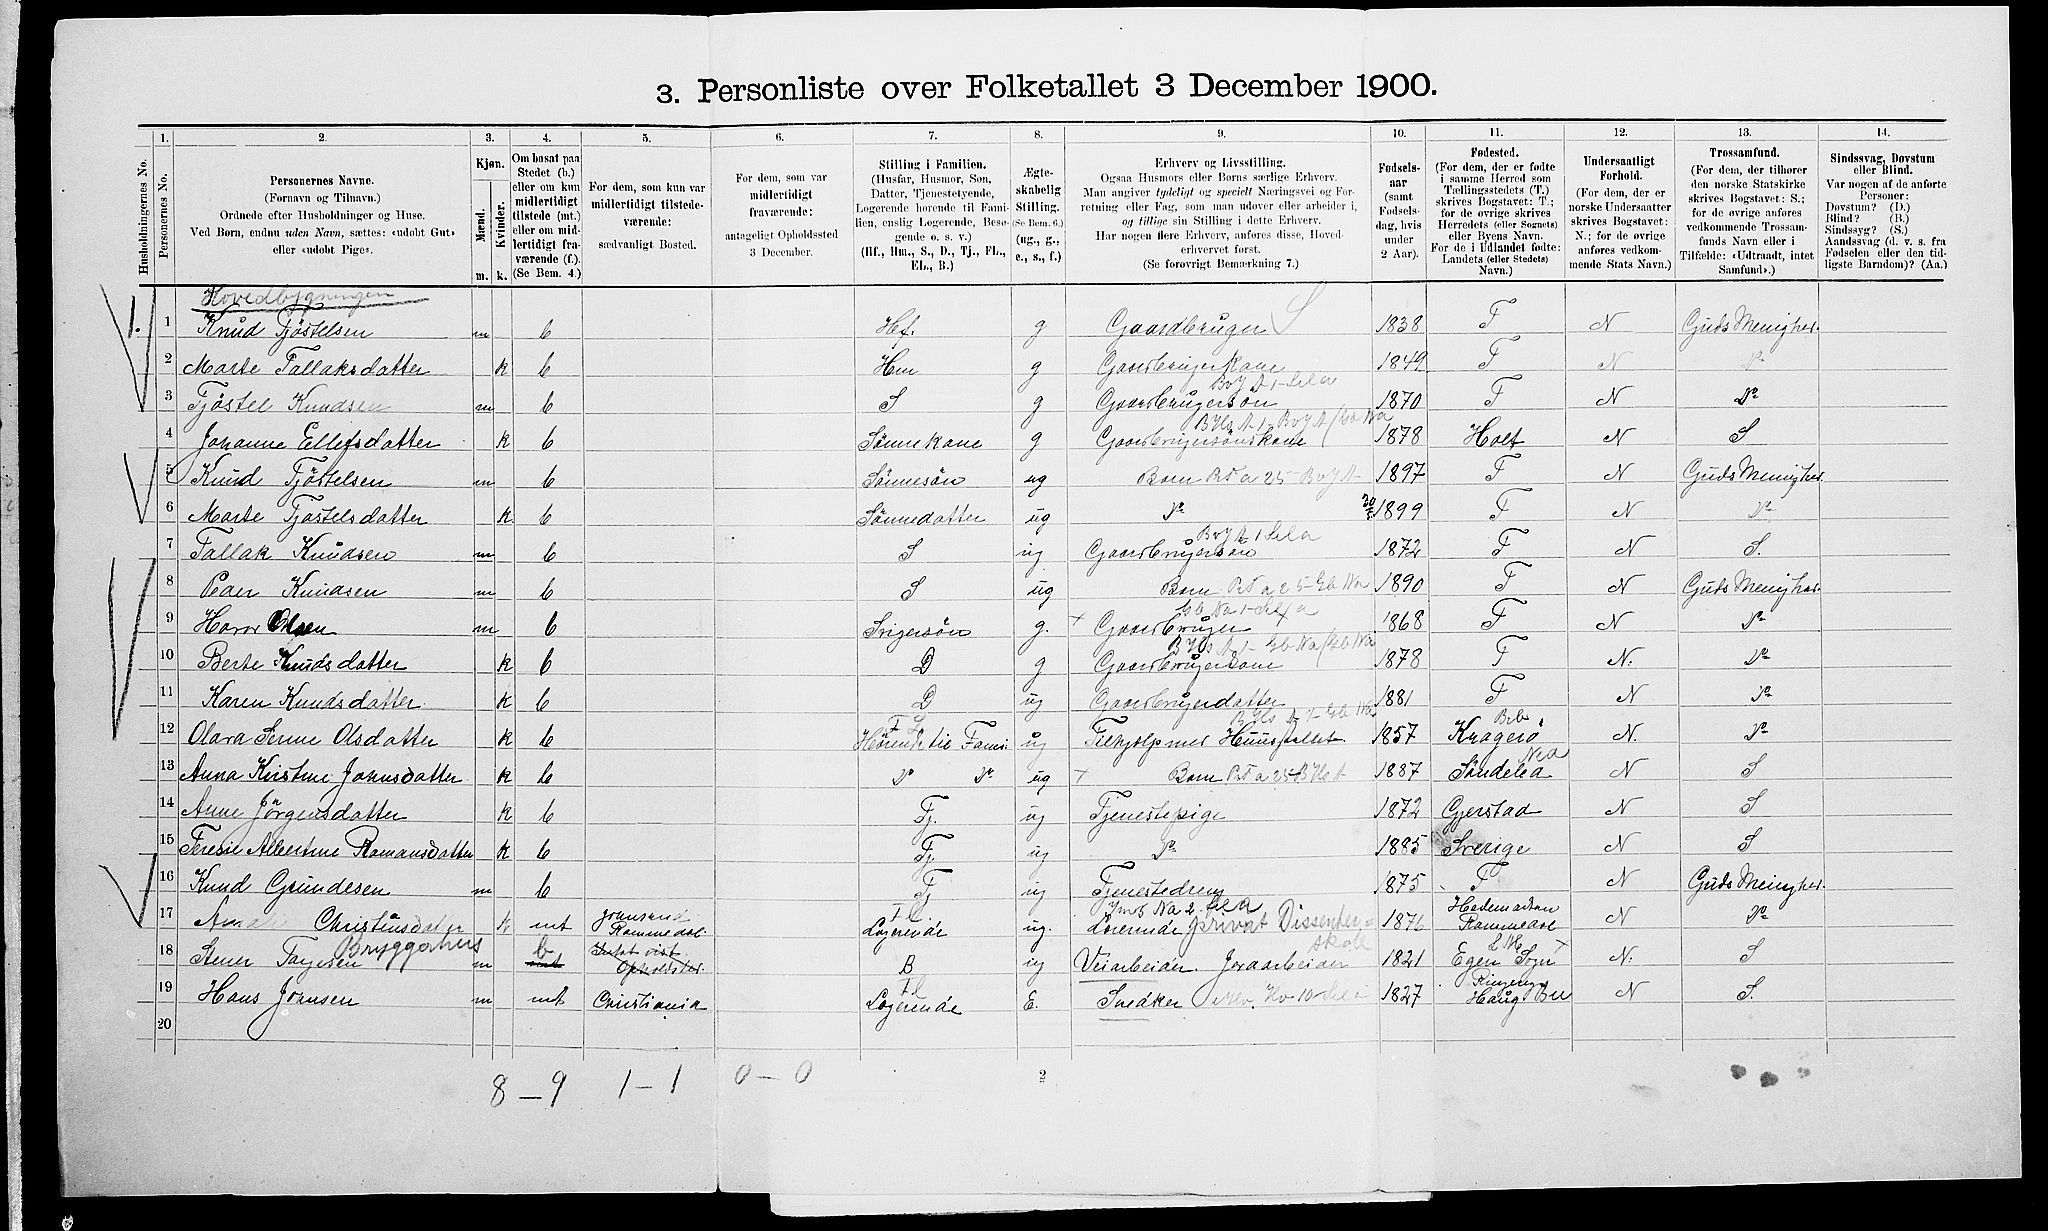 3. Personliste over Folketallet 3 December 1900.
1. 2. 3. 4. 5. 6. 7. 8. 9. 10. 11. 12. 13. 14.
Husholdningernes No.
Personernes No.
Personernes Navne.
(Fornavn og Tilnavn.)
Ordnede efter Husholdninger og Huse.
Ved Børn, endnu uden Navn, sættes: «udøbt Gut»
eller «udøbt Pige».
Kjøn.
Mænd.
Kvinder.
m. k.
Om bosat paa
Stedet (b.)
eller om kun
midlertidigt
tilstede (mt.)
eller om mid-
lertidigt fra-
værende (f.).
(Se Bem. 4.)
For dem, som kun var
midlertidigt tilstede-
værende:
sædvanligt Bosted.
For dem, som var
midlertidigt
fraværende:
antageligt Opholdssted
3 December.
Stilling i Familien.
(Husfar, Husmor, Søn,
Datter, Tjenestetyende,
Logerende hørende til Fami-
lien, enslig Logerende, Besø-
gende o. s. v.)
(Hf., Hm., S., D., Tj., FL.,
EL., B.)
Ægte-
skabelig
Stilling.
(Se Bem. 6.)
(ug., g.,
e., s., f.)
Erhverv og Livsstilling.
Ogsaa Husmors eller Børns særlige Erhverv.
Man angiver tydeligt og specielt Næringsvei og For-
retning eller Fag, som man udøver eller arbeider i,
og tillige sin Stilling i dette Erhverv.
Har nogen flere Erhverv, anføres disse, Hoved-
erhvervet først.
(Se forøvrigt Bemærkning 7.)
Fødsels-
aar
(samt
Fødsels-
dag, hvis
under
2 Aar).
Fødested.
(For dem, der er fødte
i samme Herred som
Tællingsstedets (T.)
skrives Bogstavet: T.;
for de øvrige skrives
Herredets (eller Sognets)
eller Byens Navn.
For de i Udlandet fødte:
Landets (eller Stedets)
Navn.)
Undersaatligt
Forhold.
(For dem, der er
norske Undersaatter
skrives Bogstavet:
N.; for de øvrige
anføres vedkom-
mende Stats Navn.)
Trossamfund.
(For dem, der tilhører
den norske Statskirke
skrives Bogstavet: S.;
for de øvrige anføres
vedkommende Trossam-
funds Navn eller i
Tilfælde: «Udtraadt, intet
Samfund».)
Sindssvag, Døvstum
eller Blind.
Var nogen af de anførte
Personer:
Døvstum? (D.)
Blind? (B.)
Sindssyg? (S.)
Aandssvag (d. v. s. fra
Fødselen eller den tid-
ligste Barndom)? (Aa.)
Hovedbygningen
1. 1 Knud Tjöstelsen m b Hf. g Gaardbruger 1838 T N Guds Menighed
2 Marte Tallaksdatter k b Hm g Gaardbruger kone 1849 T N Do
3 Tjöstel Knudsen m b S g Gaardbrugersön 1870 T N Do
4 Johanne Ellefsdatter k b Sönnekone g Gaardbrugersönskone 1878 Holt N S
5 Knud Tjöstelsen m b Sönnesön ug Barn 1897 T N Guds Menighed
6 Marte Tjöstelsdatter k b Sönnedatter ug Do 1899 T N Do
7 Tallak Knudsen m b S ug Gaardbrugersön 1872 T N S.
8 Peder Knudsen m b S ug Barn 1890 T N Guds Menighed
9 Olsen m b Svigersön g. Gaardbruger 1868 T N Do
10 Berte Knudsdatter k b D g Gaardbrugerkone 1878 T N. Do
11 Karen Knudsdatter k b D ug Gaardbrugerdatter 1881 T N Do
12 Olava Olsdatter k b til Fami. ug med Huusstellet 1857 Kragerö N. Do
13 Anna Kristine Johnsdatter k b Do Do ug Barn 1887 Söndeled N S
14 Anne Jörgensdatter k b Tj. ug Tjenestepige 1872 Gjerstad N S
15 Albertine Romansdatter k b Tj ug Do 1885 Sverige N S
16 Knud Grundesen m b Tj ug Tjenestedreng 1875 T N Guds Menighed
17 Christensdatter k mt Logerende ug. Lærerinde privat Dissenter skole 1876 Hedemarken N Do
Bryggerhus
18 m b B ug Veiarbeider. Jordarbeider 1821 N. S
19 Hans m mt Christiania Logerende E. Snedker 1827 Ringerige Haug N S.
20
8 – 9 1 – 1 0 – 0 2